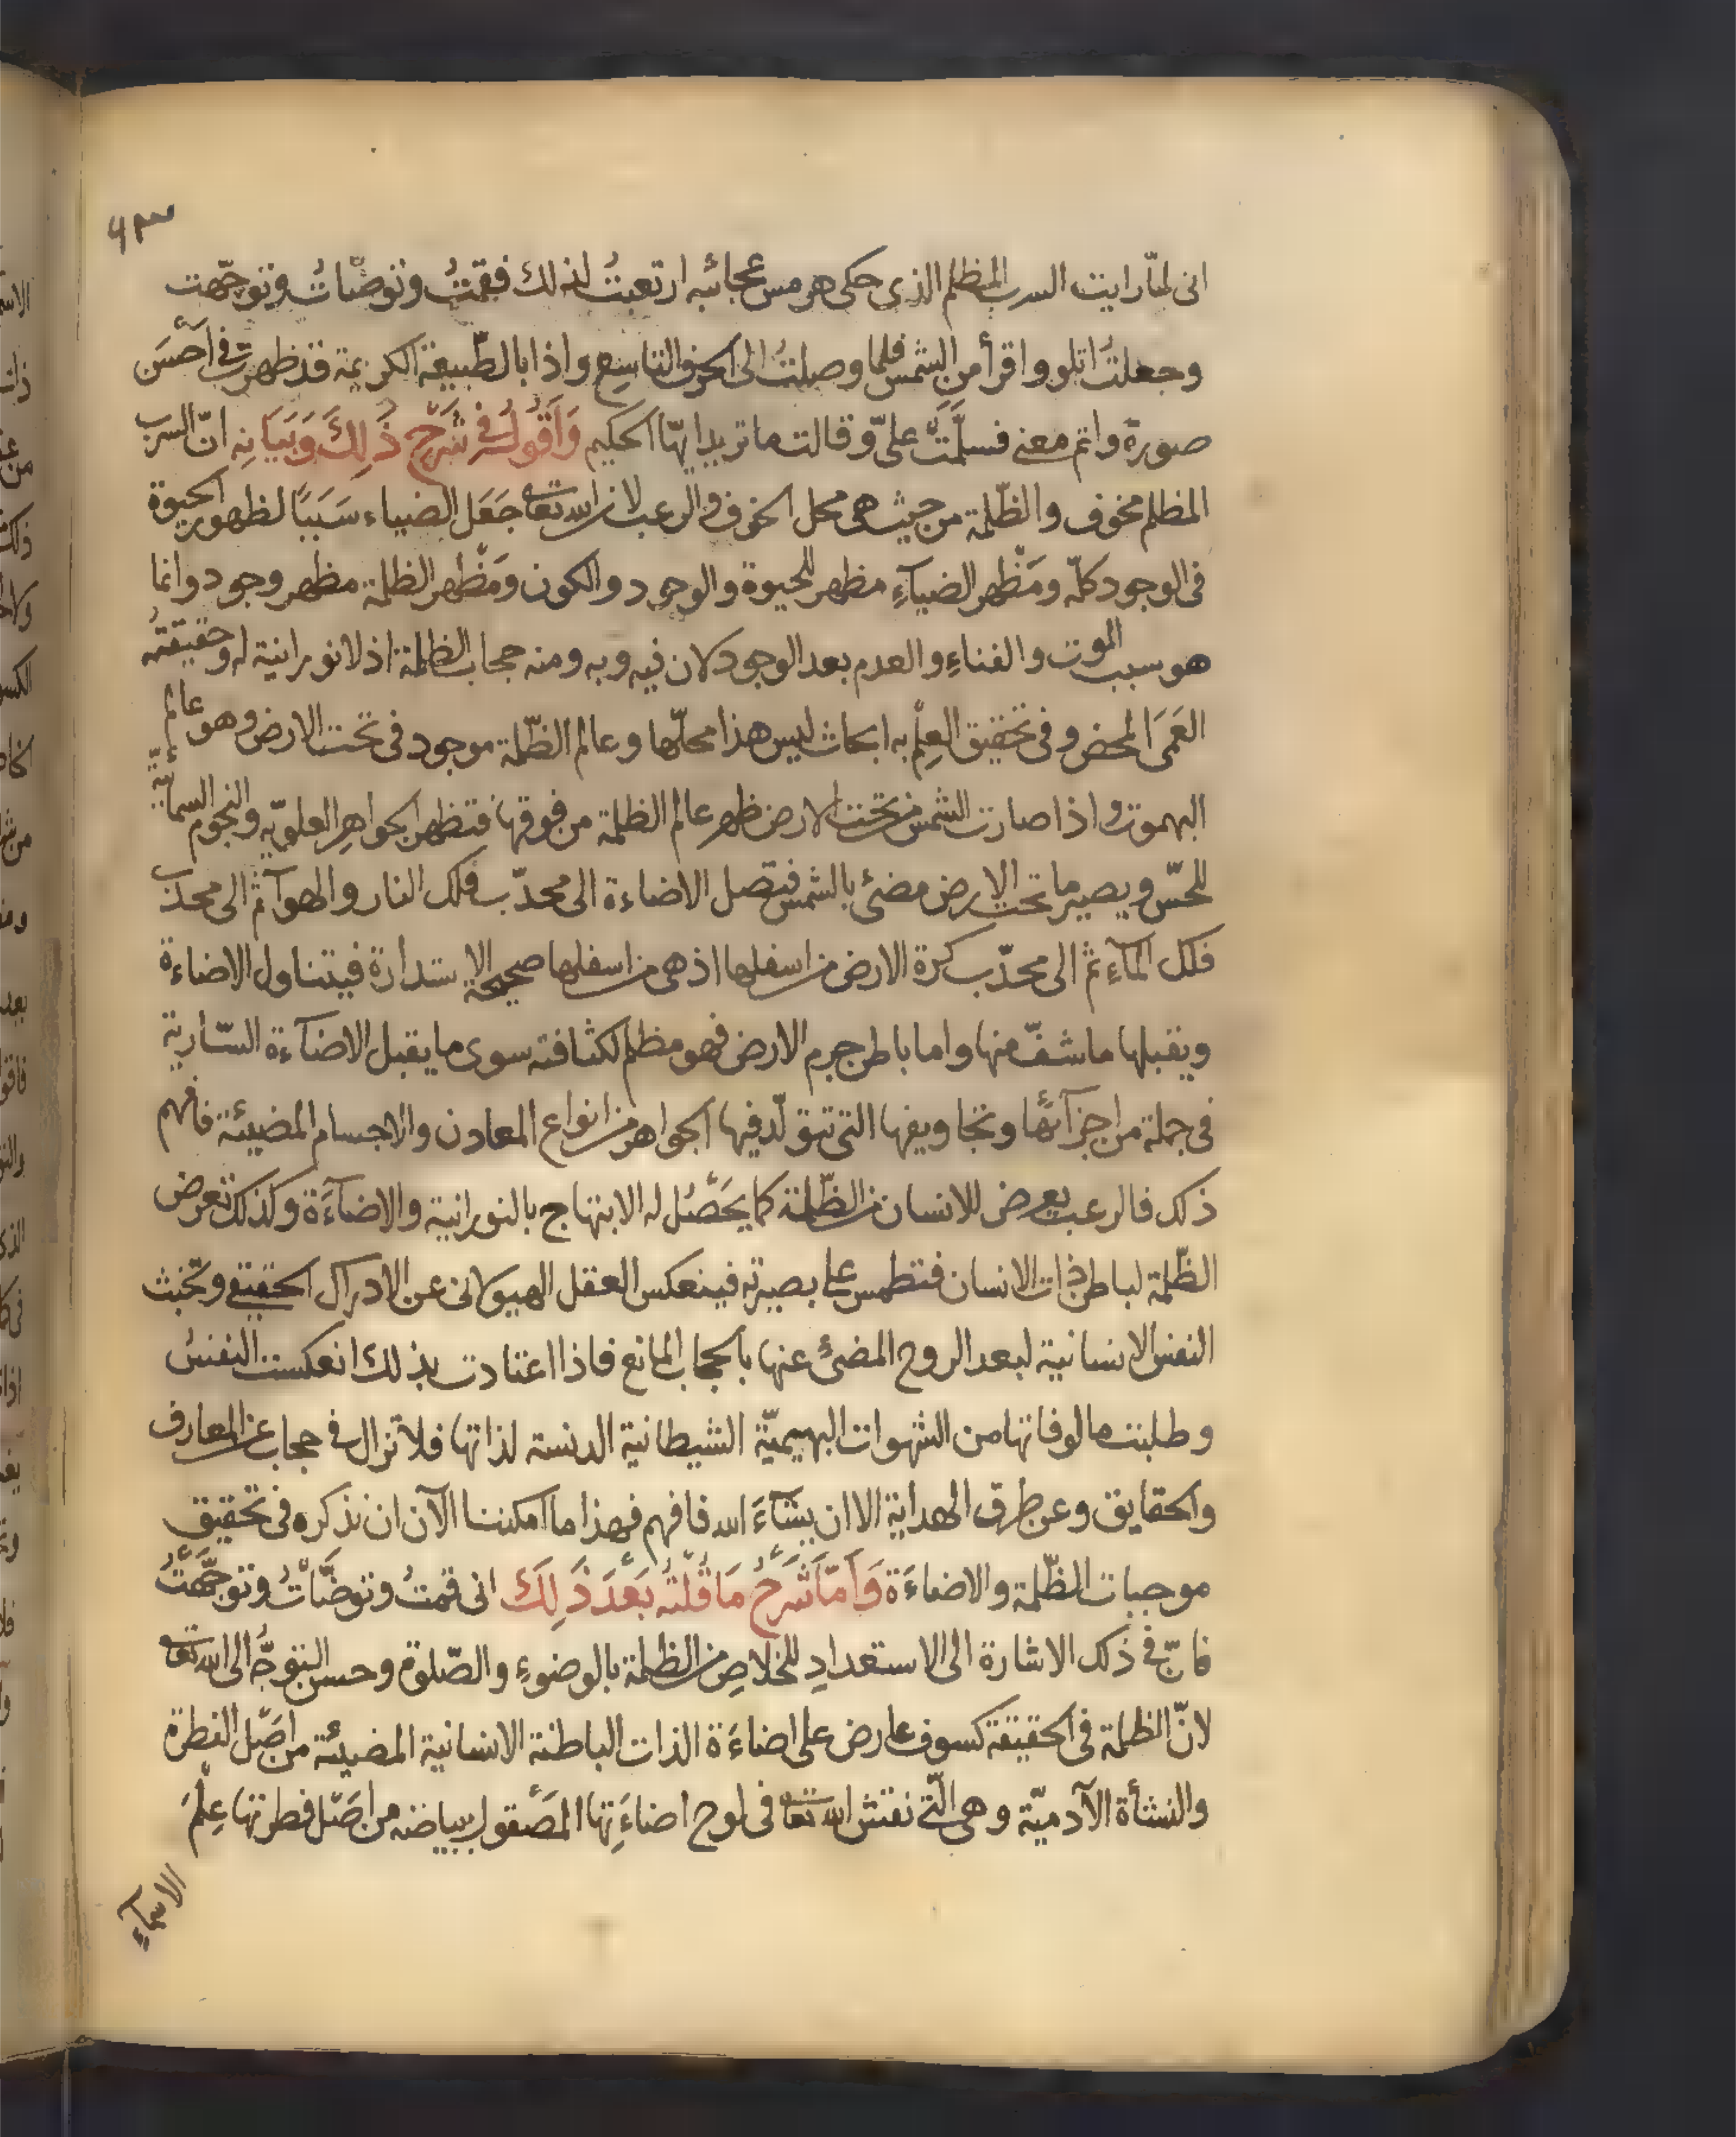 ٦٣
انى لمّا رايت السرب المظلم الذى حكى هرمس عجائبه ارتعبتُ لذلك فقمتُ وتوضّاتُ وتوجّهت
وجعلتُ اتلو واقرأ من الشمس فلما وصلتُ الى الحرف التاسع واذا بالطّبيعة الكريمة قد ظهرت فى اَحسَن
صورة واتم معنى فسلّمَتْ علىّ وقالت ما تريد ايهّا الحكيم وَاَقُولُ فى شَرْحِ ذَلِكَ وَبَيَانِه انّ السرب
المظلم مخوف والظّلمة من حيث هى محل الخوف والرعب لان الله تعا جَعَل الضياء سَبَبًا لظهور الحيوة
فى الوجود كلّه ومَظْهر الضياَءِ مظهر للحيوة والوجود والكون ومَظْهر الظلمة مظهر وجود وانما
هو سبب الموت والفناءِ والعدم بعد الوجود لان فيه وبه ومنه حجاب الظلمة اذ لا نورانية له وحقيقته
العَمَى المحض وفى تحقيق العِلْم به ابحاث ليس هذا محلّها وعالم الظّلمة موجود فى تحت الارض وهو عالم
البهموت واذا صارت الشمس من تحت الارض ظهر عالم الظلمة من فوقها فتظهر الجواهر العلويّه والنجوم السمائيّة
للحسّ ويصير ما تحت الارض مضئ بالشمس فتصل الاضاءة الى محدّب فلك النار والهوآ ثم الى محدّب
فلك المآءِ ثم الى محدّب كرة الارض من اسفلها اذ هى من اسفلها صحيحة الاستدارة فيتناول الاضاءة
ويقبلها ما شفّ منها واما باطن جرم الارض فهو مظلم لكثافته سوى ما يقبل الاضآءة السّارية
فى جملة من اجزآئها وتجاويفها التى تتولّد فيها الجواهر من انواع المعادن والاجسام المضيئة فافهم
ذلك فالرعب يعرض للانسان من الظّلمة كما يحَصُل له الابتهاج بالنورانية والاضآءَة وكذلك تعرض
الظّلمة لباطن ذات الانسان فتطمس على بصيرته فينعكس العقل الهيولانى عن الادراك الحقيقى وتخبث
النفس الانسانية لبعد الروح المضئ عنها بالحجاب المانع فاذا اعتادت بذلك انعكست النفسُ
وطلبت مالوفاتها من الشهوات البهيميّة الشيطانية الدنسة لذاتها فلا تزال فى حجاب عن المعارف
والحقايق وعن طرق الهداية الا ان يشَآءَ الله فافهم فهذا ما امكننا الآن ان نذكره فى تحقيق
موجبات الظّلمة والاضاءَة وَاَمّا شَرْحُ مَا قُلْتُه بَعْدَ ذَلِكَ انى قمتُ وتوضَّاْتُ وتوجَّهْتُ
فانّ فى ذلك الاشارة الى الاستعدادِ للخلاصِ من الظلمة بالوضوءِ والصّلوة وحسن التوجُّه الى الله تعا
لانّ الظلمة فى الحقيقة كسوف عارض على اضاءَة الذات الباطنة الانسانية المضيئة من اصَل الفطرة
والنشأة الآدميّة وهى الّتى نقش الله تعا فى لوح اضاءَتِها المَصْقول ببياضه من اصَل فطرتها عِلْمَ
الاسماءِ